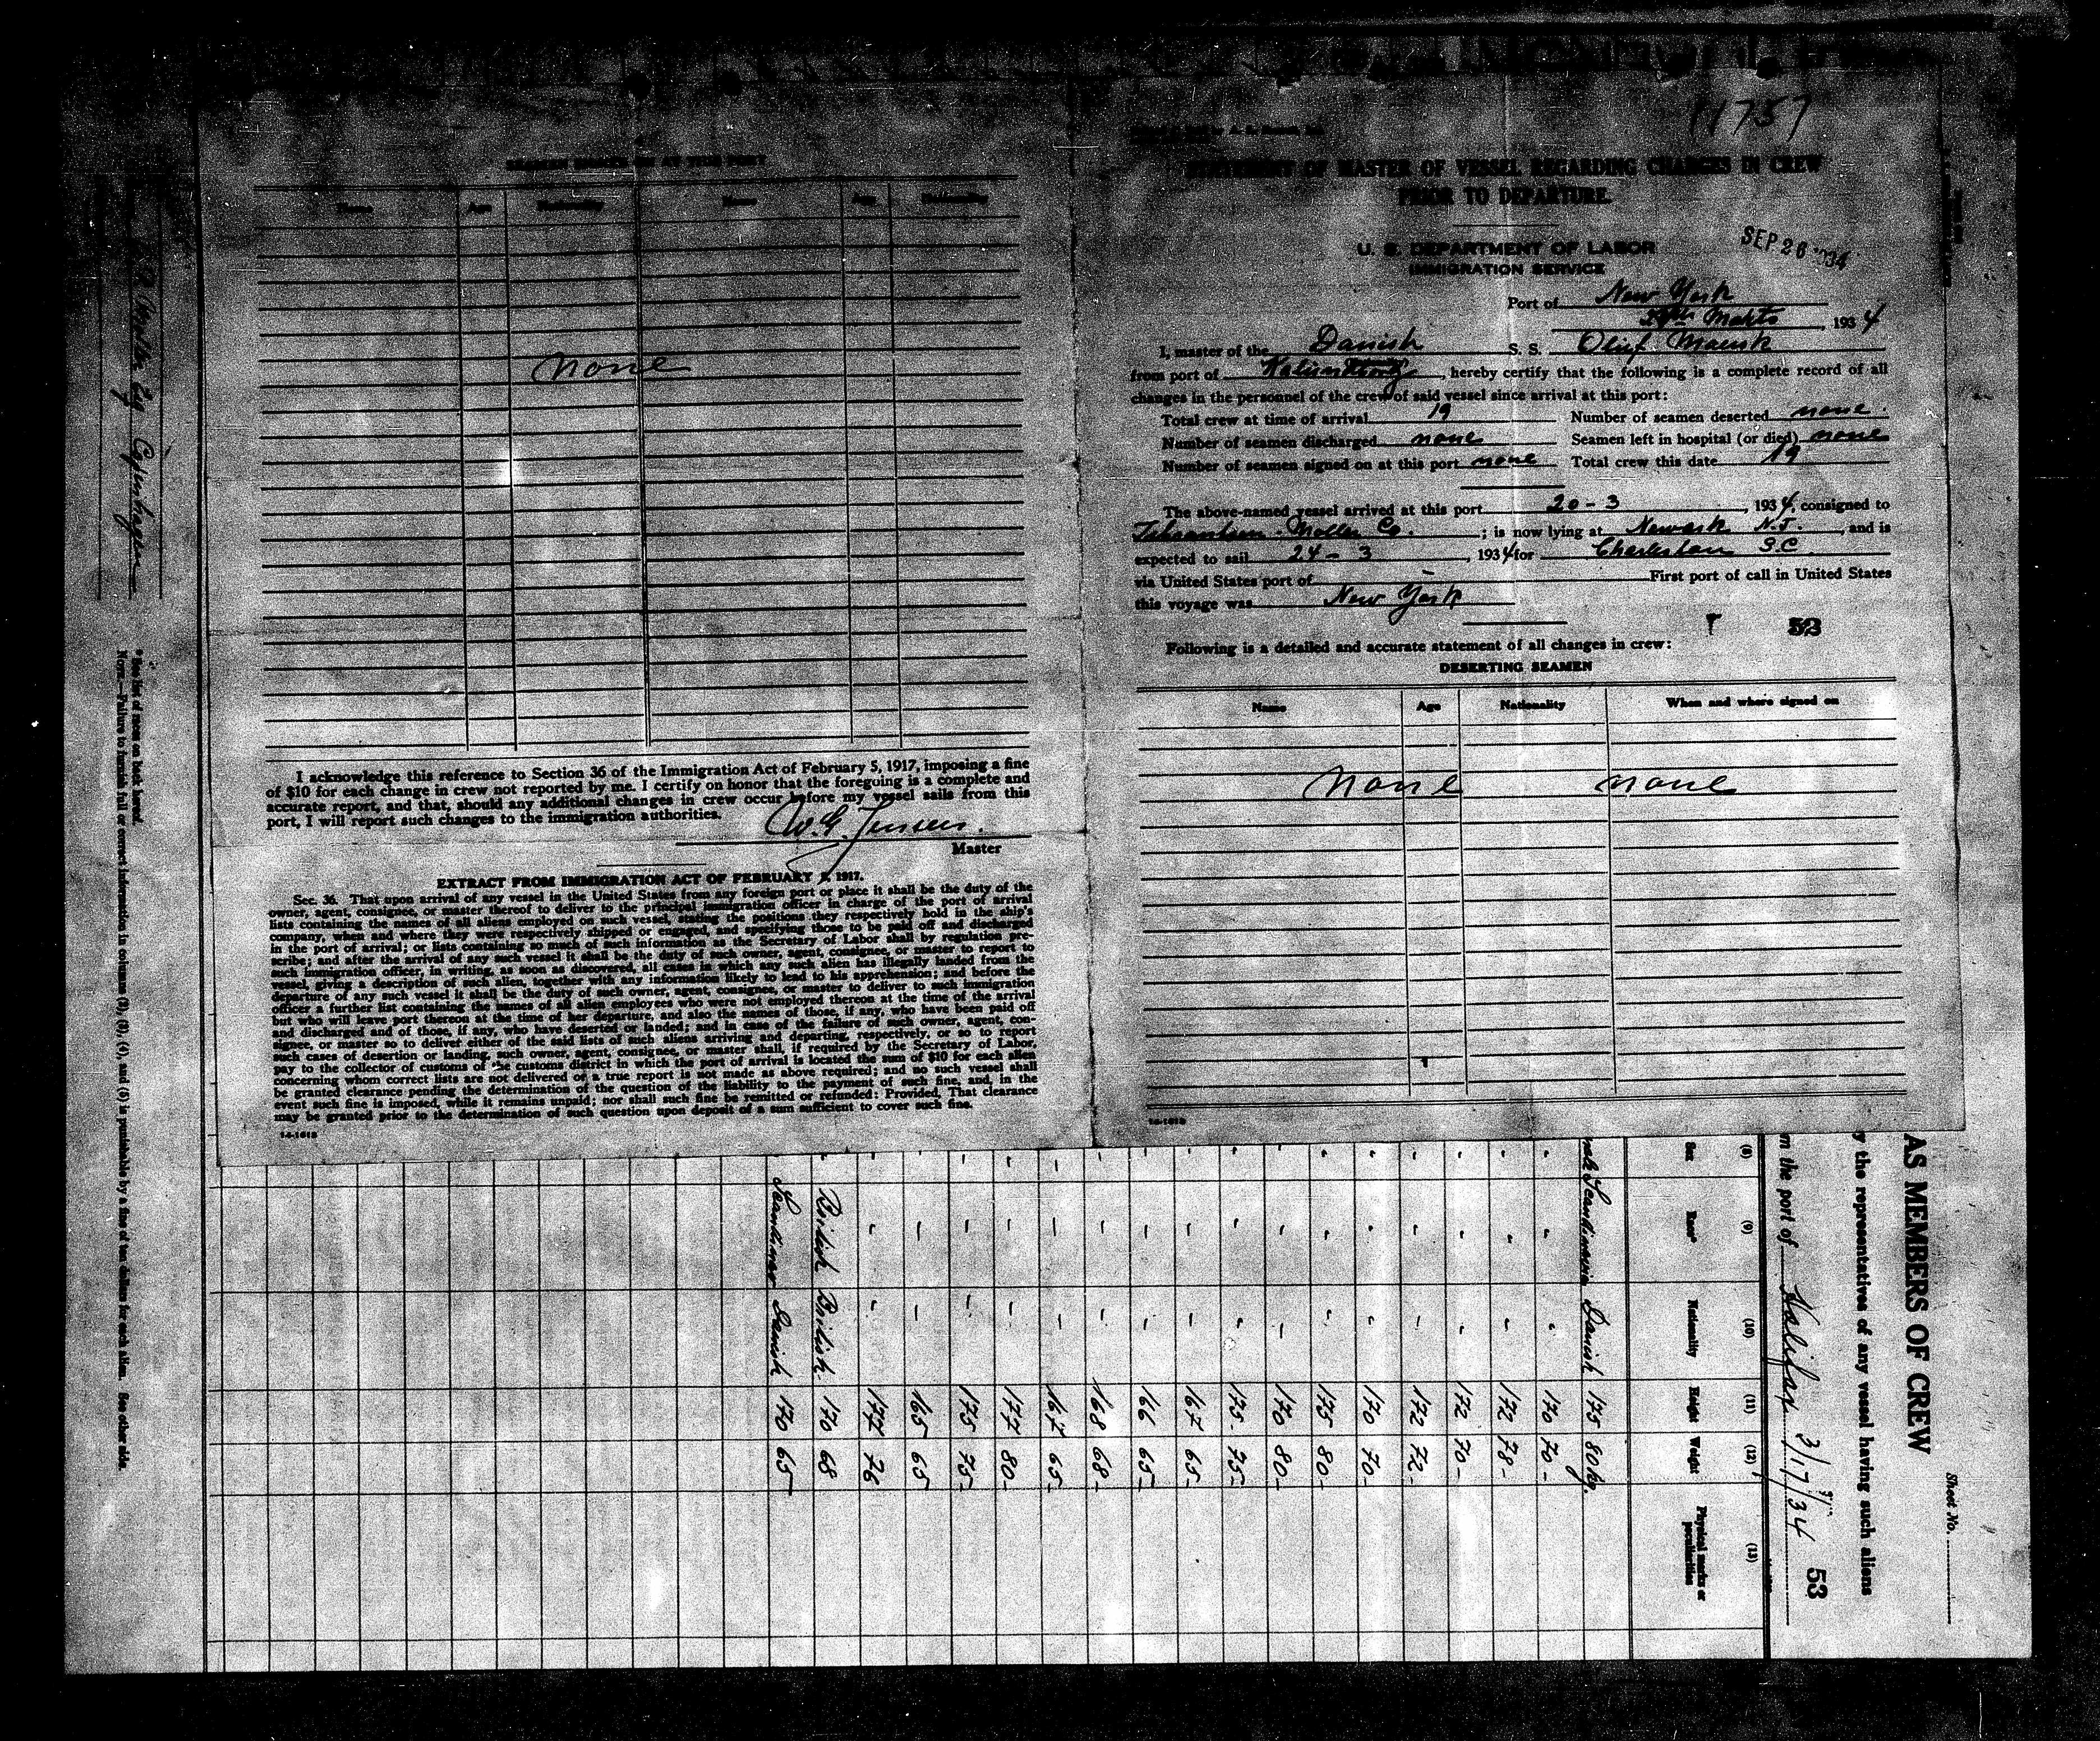 SEAMEN SIGNED ON AT THIS PORT
Name Age Nationality Name Age Nationality
none
I acknowledge this reference to Section 36 of the Immigration Act of February 5, 1917, imposing a fine
of $10 for each change in crew not reported by me. I certify on honor that the foregoing is a complete and
accurate report, and that, should any additional changes in crew occur before my vessel sails from this
port, I will report such changes to the immigration authorities.
W. G. Jensen.
Master
EXTRACT FROM IMMIGRATION ACT OF FEBRUARY 5, 1917.
Sec. 36. That upon arrival of any vessel in the United States from any foreign port or place it shall be the duty of the
owner, agent, consignee, or master thereof to deliver to the principal immigration officer in charge of the port of arrival
lists containing the names of all aliens employed on such vessel, stating the positions they respectively hold in the ship's
company, when and where they were respectively shipped or engaged, and specifying those to be paid off and discharged
in the port of arrival; or lists containing so much of such information as the Secretary of Labor shall by regulation pre-
scribe; and after the arrival of any such vessel it shall be the duty of such owner, agent, consignee, or master to report to
such immigration officer, in writing, as soon as discovered, all cases in which any such alien has illegally landed from the
vessel, giving a description of such alien, together with any information likely to lead to his apprehension; and before the
departure of any such vessel it shall be the duty of such owner, agent, consignee, or master to deliver to such immigration
officer a further list containing the names of all alien employees who were not employed thereon at the time of the arrival
but who will leave port thereon at the time of her departure, and also the names of those, if any, who have been paid off
and discharged and of those, if any, who have deserted or landed; and in case of the failure of such owner, agent, con-
signee, or master so to deliver either of the said lists of such aliens arriving and departing, respectively, or so to report
such cases of desertion or landing, such owner, agent, consignee, or master shall, if required by the Secretary of Labor,
pay to the collector of customs of the customs district in which the port of arrival is located the sum of $10 for each alien
concerning whom correct lists are not delivered or a true report is not made as above required; and no such vessel shall
be granted clearance pending the determination of the question of the liability to the payment of such fine, and, in the
event such fine is imposed, while it remains unpaid; nor shall such fine be remitted or refunded: Provided, That clearance
may be granted prior to the determination of such question upon deposit of a sum sufficient to cover such fine.
14-1618
11757
STATEMENT OF MASTER OF VESSEL REGARDING CHANGES IN CREW
PRIOR TO DEPARTURE.
U. S. DEPARTMENT OF LABOR
IMMIGRATION SERVICE
SEP 26 1934
Port of New York
24th Marts, 1934
I, master of the Danish S. S. Oluf Maersk
from port of Kalundborg, hereby certify that the following is a complete record of all
changes in the personnel of the crew of said vessel since arrival at this port:
Total crew at time of arrival 19 Number of seamen deserted none.
Number of seamen discharged none Seamen left in hospital (or died) none
Number of seamen signed on at this port none Total crew this date 19
The above-named vessel arrived at this port 20-3, 1934, consigned to
Moller Co.; is now lying at Newark N.J., and is
expected to sail 24-3, 1934 for Charleston S.C
via United States port of - First port of call in United States
this voyage was New York
53
Following is a detailed and accurate statement of all changes in crew:
DESERTING SEAMEN
Name Age Nationality When and where signed on
none none
14-1618
Sheet No.
AS MEMBERS OF CREW
y the representatives of any vessel having such aliens
m the port of Halifax 3/17/34
53
(8) (9) (10) (11) (12) (13)
Sex Race* Nationality Height Weight Physical marks or peculiarities
male Scandinavia Danish 175 80 kg.
" " " 170 70-
" " " 172 78-
" " " 172 70-
" " " 172 72-
" " " 170 70-
" " " 175 80-
" " " 170 80-
" " " 175 75-
" " " 167 65-
" " " 166 65-
" " " 168 68-
" " " 167 65-
" " " 177 80-
" " " 175 75-
" " " 165 65
" " " 177 76
" British British 170 68
" Scandinav Danish 170 65
* See list of races on back hereof.
Note.—Failure to furnish full or correct information in columns (2), (3), (4), and (6) is punishable by a fine of ten dollars for each alien. See other side.
Copenhagen